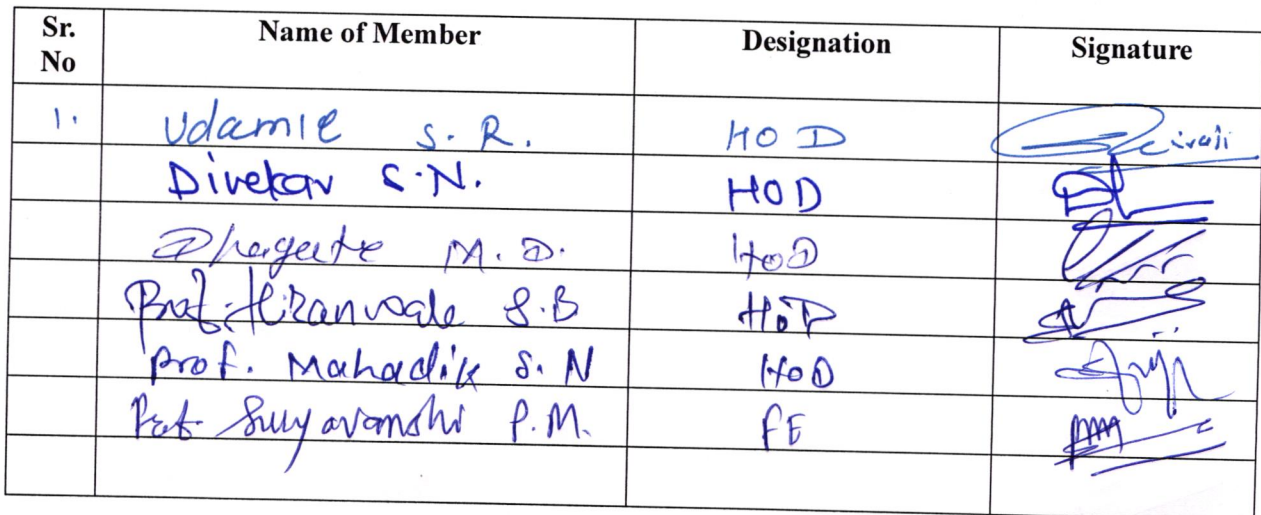 Sr. No Name of Member Designation Signature
1. Udamle S. R. HOD
Divekar S.N. HOD
Dhagate M. D. HOD
Prof. Hiranwale S.B HOD
Prof. Mahadik S. N HOD
Prof. Suryavanshi P.M. FE